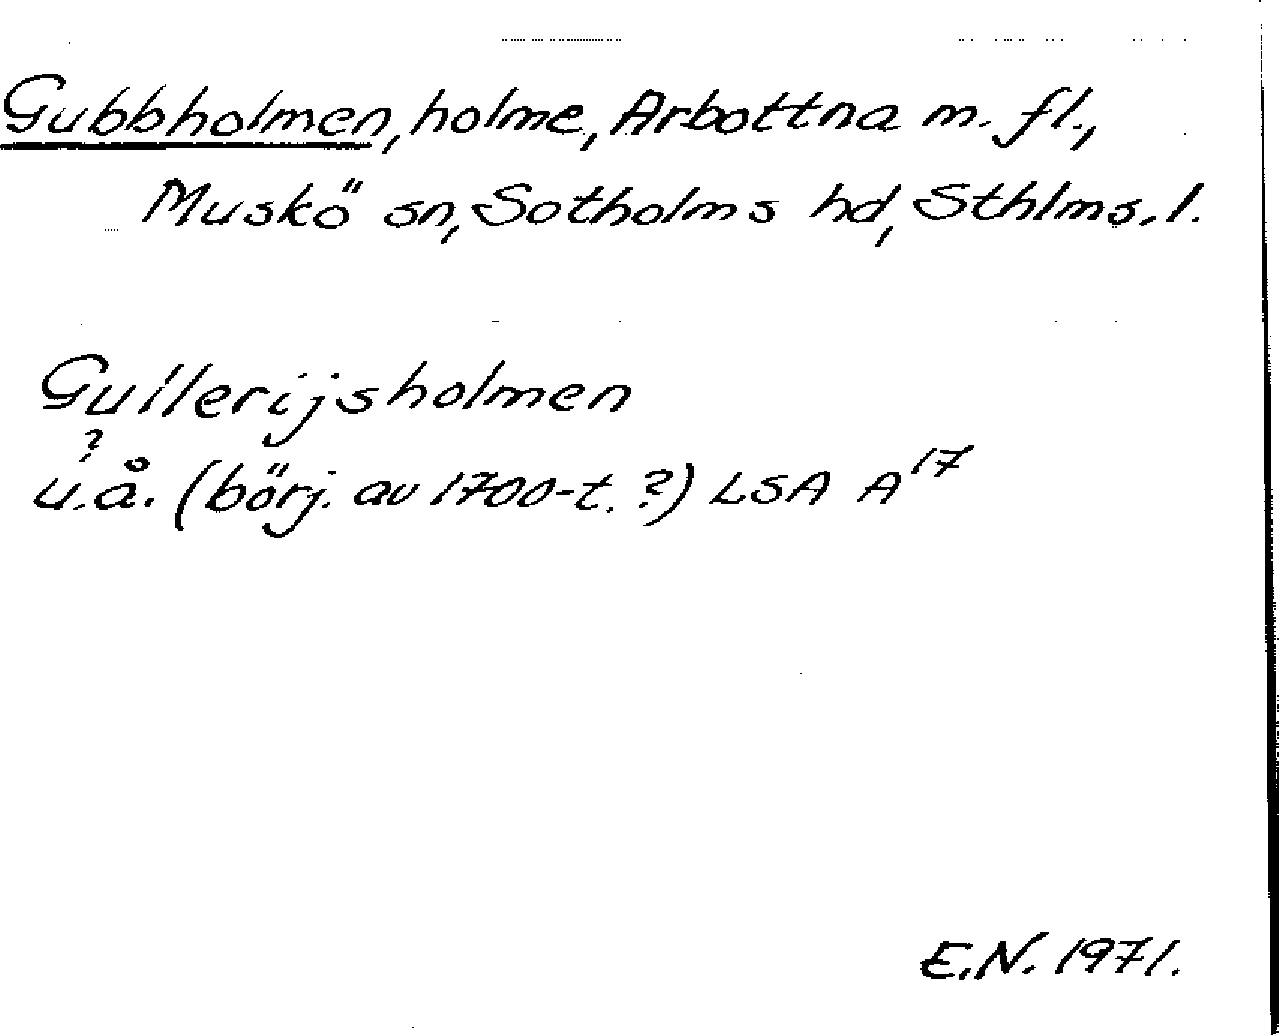 Gubbholmen, holme, Arbottna m. fl.,
Muskö sn, Sotholms hd, Sthlms. l.
Gullerijsholmen
?
u.å. (börj. av 1700-t. ?) LSA A¹⁷
E.N. 1971.